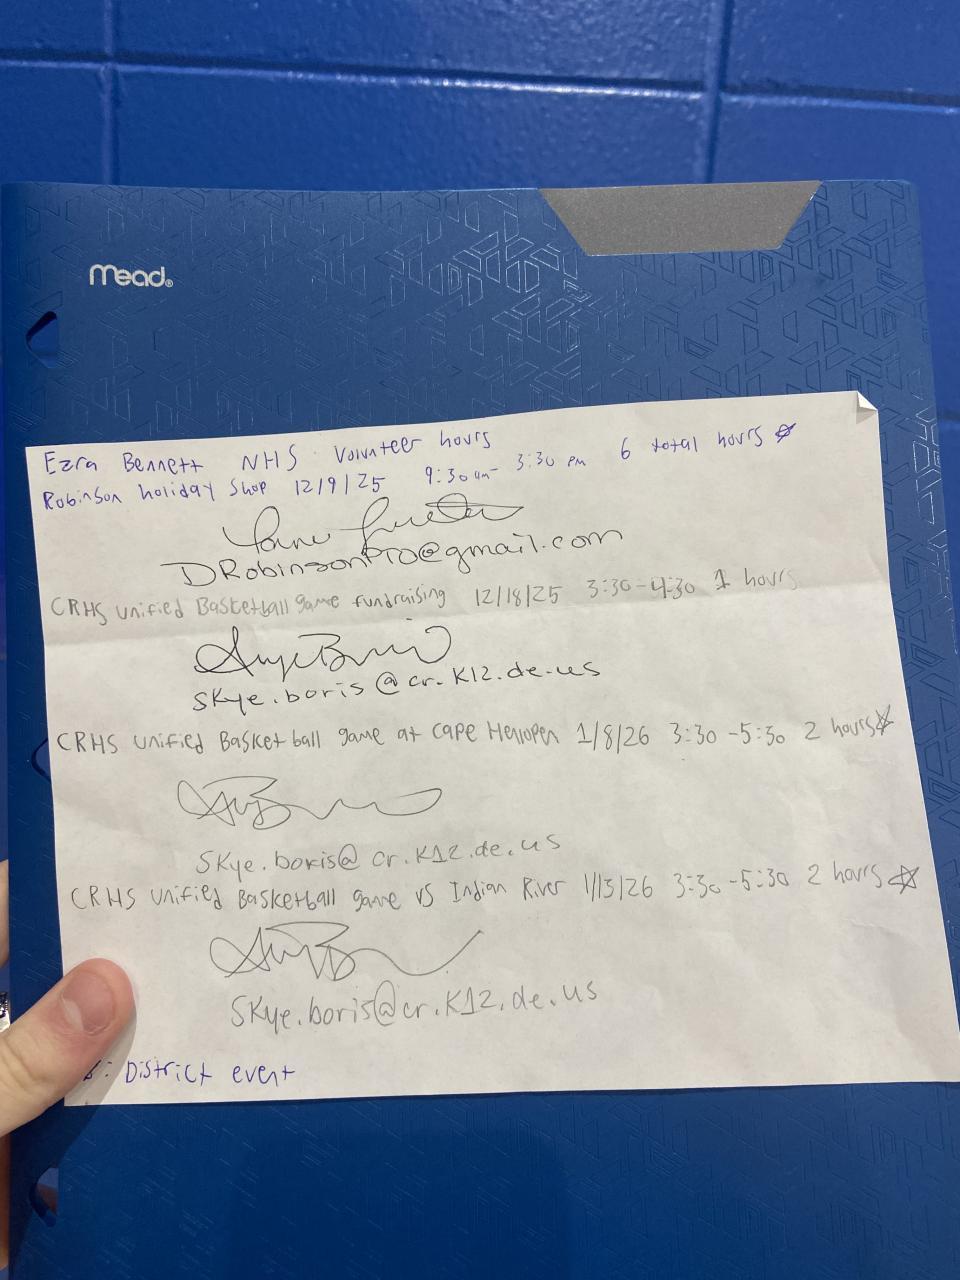 mead®
Ezra Bennett NHS Volunteer hours
Robinson holiday shop 12/9/25 9:30 am- 3:30 pm 6 total hours ☆
DRobinsonPro@gmail.com
CRHS unified Basketball game fundraising 12/18/25 3:30-4:30 1 hours
skye.boris@cr.k12.de.us
CRHS unified Basketball game at Cape Henlopen 1/8/26 3:30-5:30 2 hours☆
skye.boris@cr.k12.de.us
CRHS unified Basketball game vs Indian River 1/13/26 3:30-5:30 2 hours☆
skye.boris@cr.k12.de.us
: District event